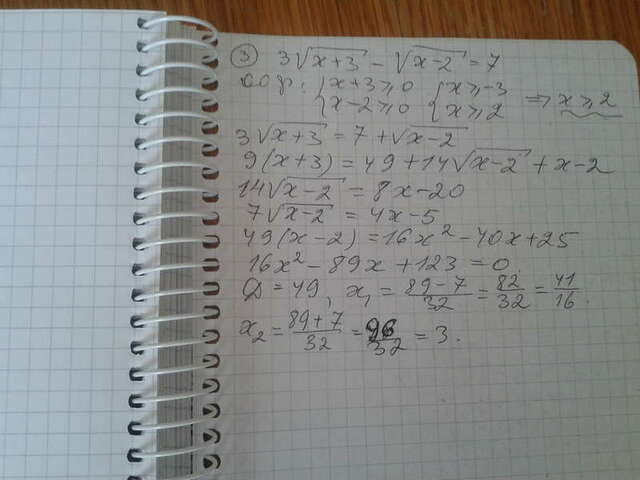 ③ 3√(x+3) - √(x-2) = 7
ООФ: {x+3⩾0 {x⩾-3
{x-2⩾0 {x⩾2 ⇒ x⩾2
3√(x+3) = 7+√(x-2)
9(x+3) = 49+14√(x-2) + x-2
14√(x-2) = 8x-20
7√(x-2) = 4x-5
49(x-2) = 16x² - 40x+25
16x² - 89x + 123 = 0
D = 49, x₁ = (89-7)/32 = 82/32 = 41/16.
x₂ = (89+7)/32 = 96/32 = 3.